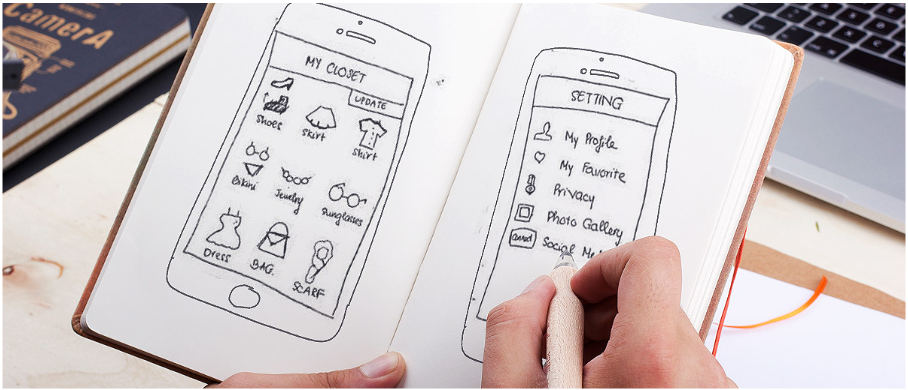 CamerA
MY CLOSET
UPDATE
Shoes
Skirt
Shirt
Bikini
Jewelry
Sunglasses
Dress
BAG
SCARF
SETTING
My Profile
My Favorite
Privacy
Photo Gallery
Social